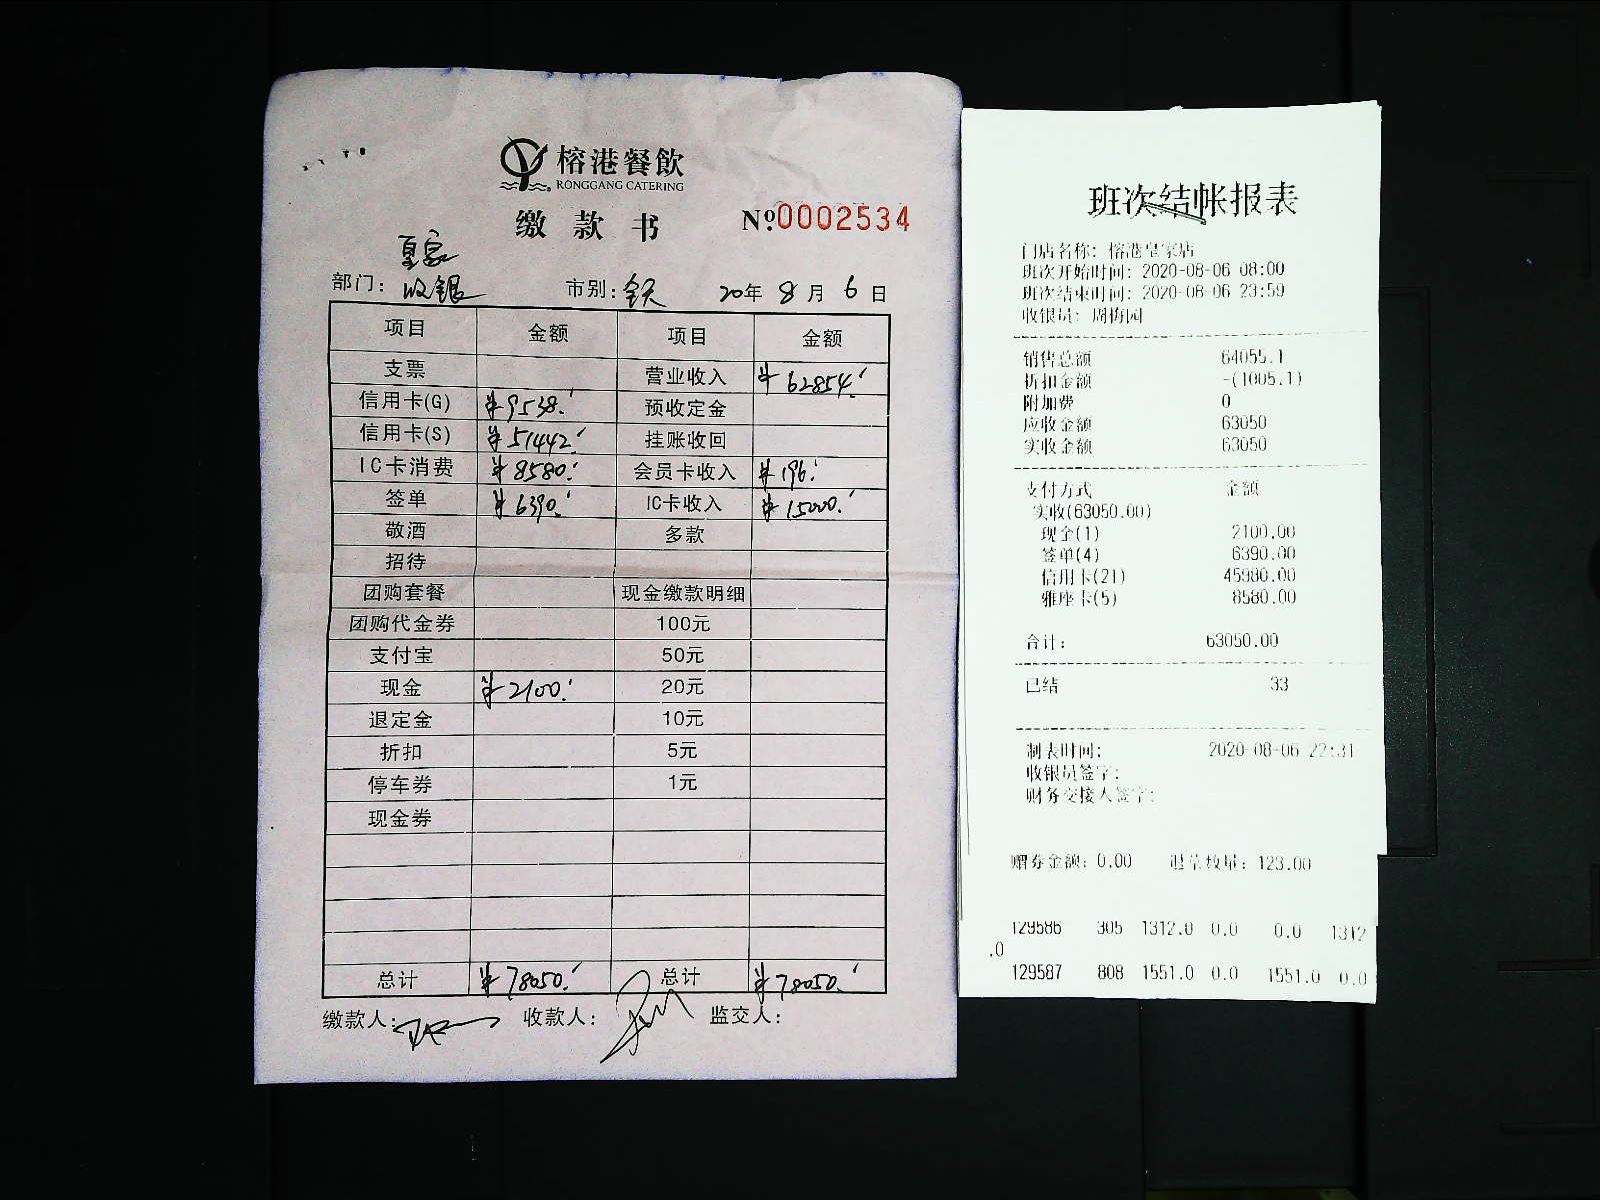 榕港餐飲
RONGGANG CATERING
缴款书 №0002534
皇家
部门: 收银 市别: 全天 20年 8月 6日
项目 金额 项目 金额
支票 营业收入 ¥62854.
信用卡(G) ¥9538. 预收定金
信用卡(S) ¥51442. 挂账收回
IC卡消费 ¥8580. 会员卡收入 ¥196.
签单 ¥6390. IC卡收入 ¥15000.
敬酒 多款
招待
团购套餐 现金缴款明细
团购代金券 100元
支付宝 50元
现金 ¥2100. 20元
退定金 10元
折扣 5元
停车券 1元
现金券
总计 ¥78050. 总计 ¥78050.
缴款人: 收款人: 监交人:
班次结帐报表
门店名称: 榕港皇家店
班次开始时间: 2020-08-06 08:00
班次结束时间: 2020-08-06 23:59
收银员: 周梅园
销售总额 64055.1
折扣金额 -(1005.1)
附加费 0
应收金额 63050
实收金额 63050
支付方式 金额
实收(63050.00)
现金(1) 2100.00
签单(4) 6390.00
信用卡(21) 45980.00
雅座卡(5) 8580.00
合计: 63050.00
已结 33
制表时间: 2020-08-06 22:31
收银员签字:
财务交接人签字:
赠券金额: 0.00 退单数量: 123.00
129586 305 1312.0 0.0 0.0 1312
.0
129587 808 1551.0 0.0 1551.0 0.0